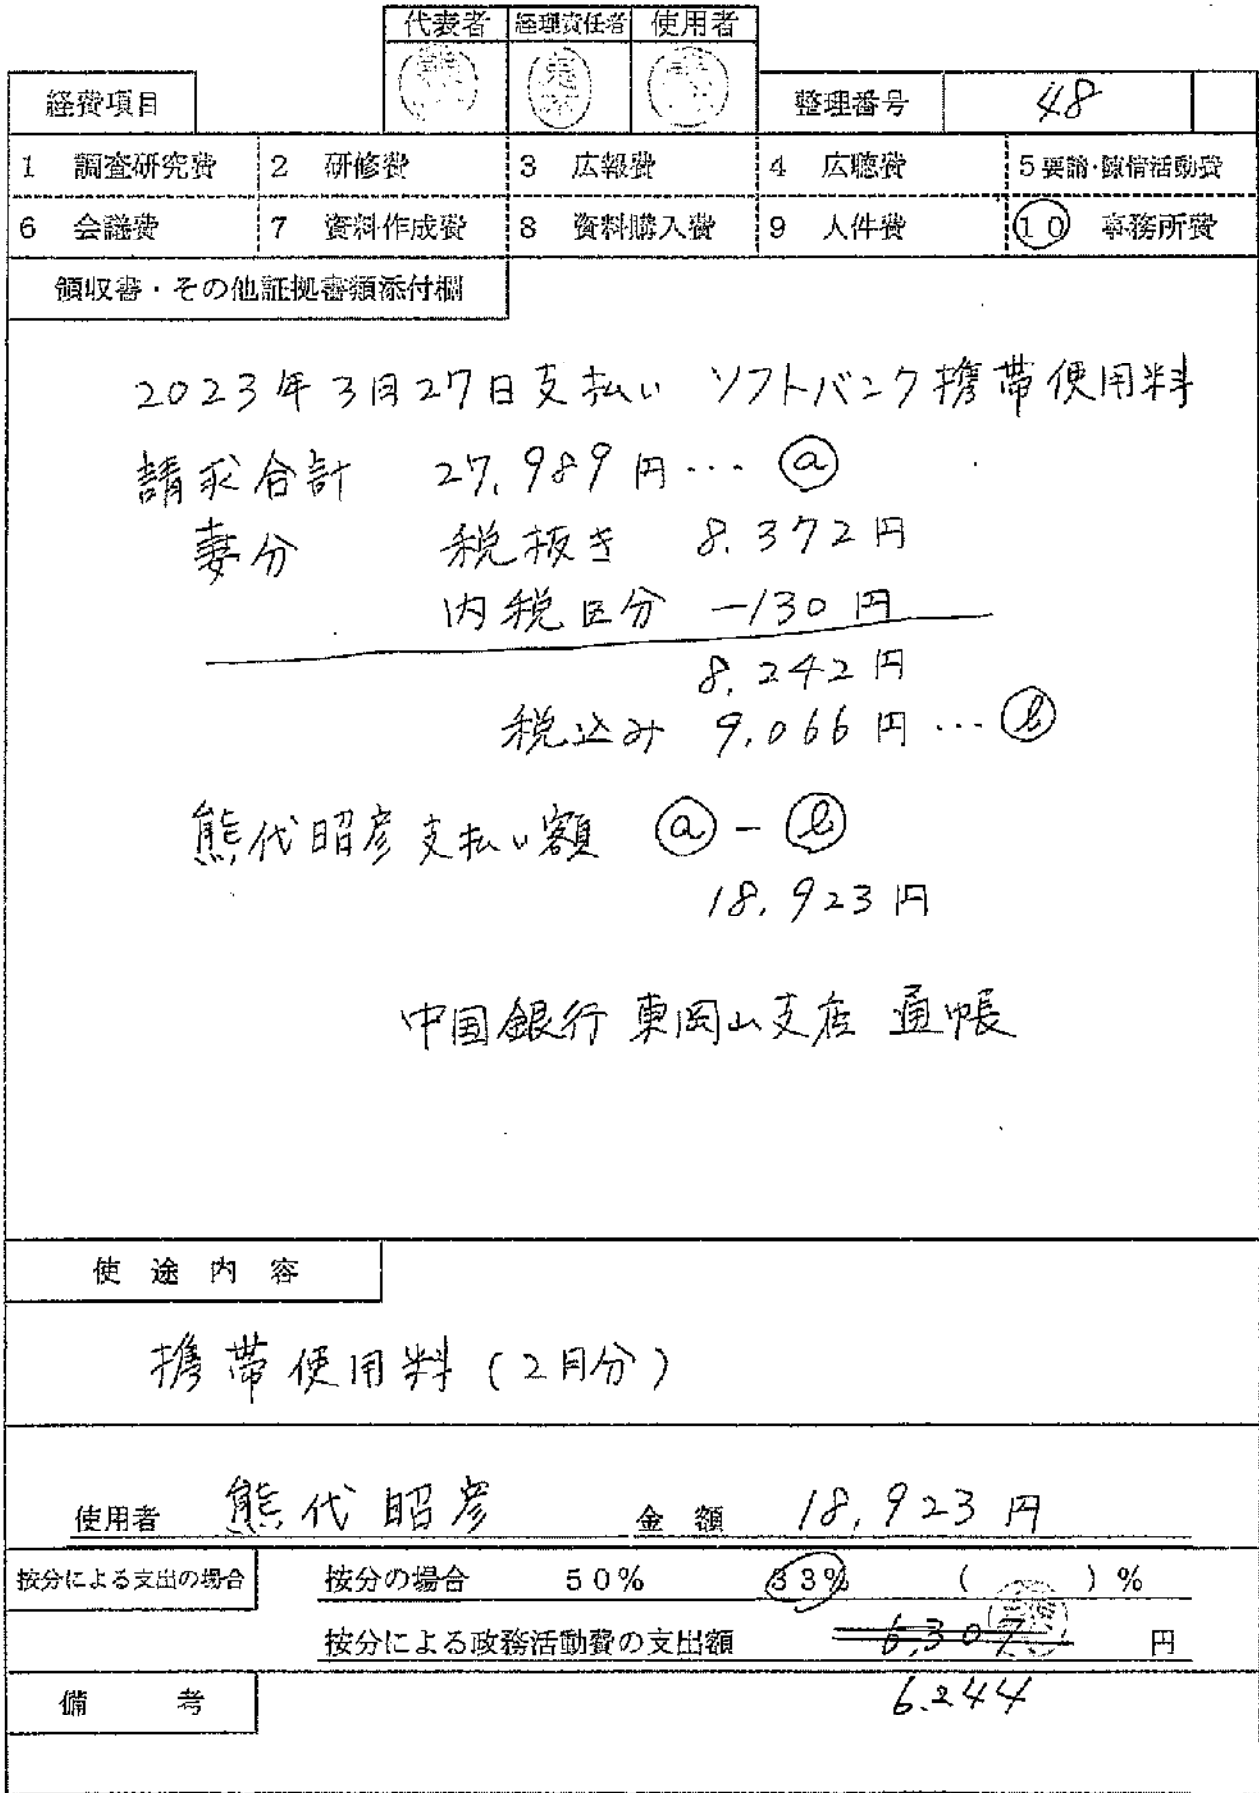 代表者 経理責任者 使用者
経費項目 整理番号 48
1 調査研究費 2 研修費 3 広報費 4 広聴費 5 要請・陳情活動費
6 会議費 7 資料作成費 8 資料購入費 9 人件費 10 事務所費
領収書・その他証拠書類添付欄
2023年3月27日支払い ソフトバンク携帯使用料
請求合計 27,989円…ⓐ
妻分 税抜き 8.372円
内税区分 -130円
8,242円
税込み 9,066円…ⓑ
熊代昭彦支払い額 ⓐ-ⓑ
18,923円
中国銀行 東岡山支店 通帳
使途内容
携帯使用料(2月分)
使用者 熊代昭彦 金額 18,923円
按分による支出の場合 按分の場合 50% 33% ( )%
按分による政務活動費の支出額 6,307 円
6.244
備考